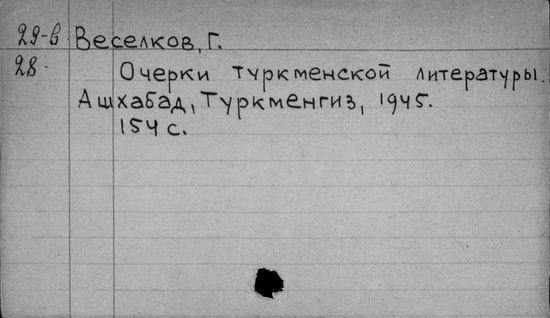 29-в Веселков, Г.
28 Очерки туркменской литературы.
Ашхабад, Туркменгиз, 1945.
154 с.